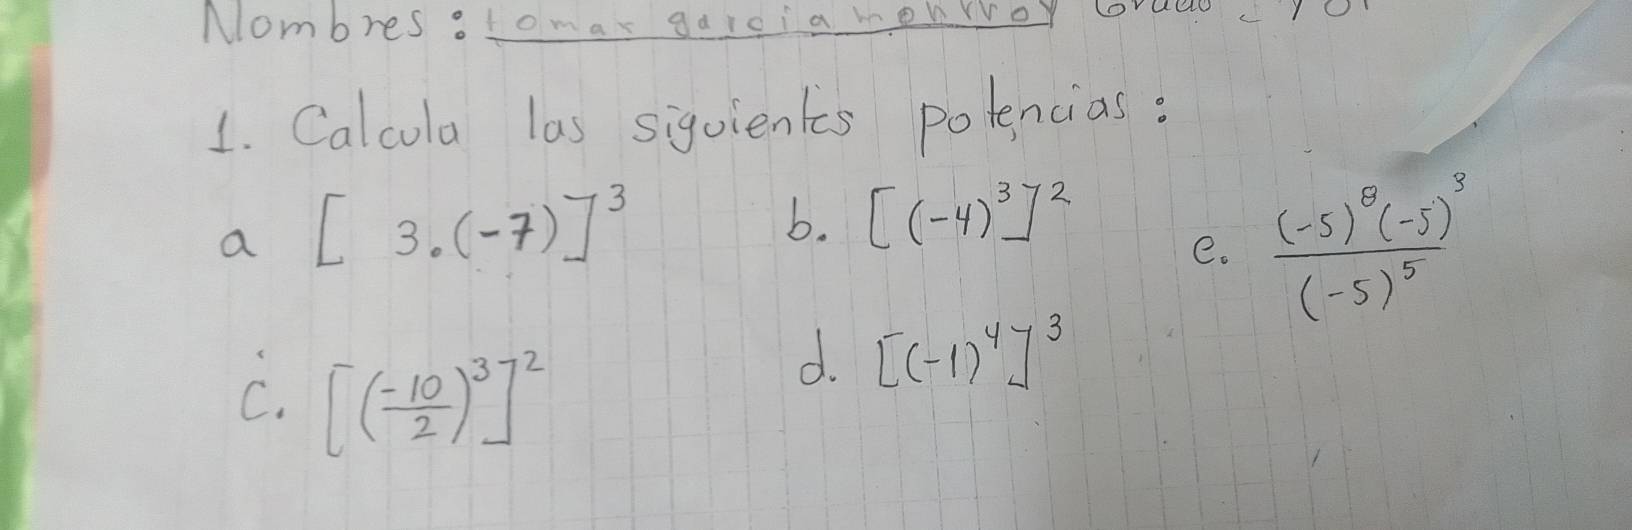 Nombres: tomas garcia monrroy Grado
1. Calcula las siguientes potencias:
a [ 3.(-7)]³ b. [(-4)³]² e. (-5)⁸(-5)³ / (-5)⁵
c. [(-10/2)³]² d. [(-1)⁴]³